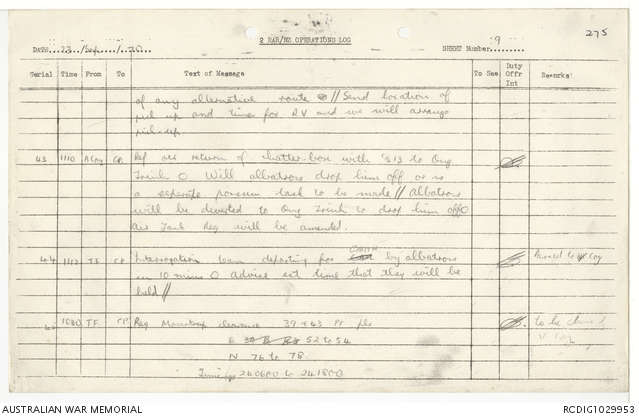 275
2 RAR/NZ OPERATIONS LOG
DATE 23/Sep/70 SHEET Number 9
Serial Time From To Text of Message To See Duty Offr Int Remarks
of any alternative route // Send location of
pick up and time for RV and we will arrange
pick-up.
43 1110 A Coy CP Ref air return of chatter box with to Ouy
Trinh O Will albatross drop him off or is
a separate possum task to be made // Albatross
will be devoted to Ouy Trinh to drop him off O
Air Task Req will be amended.
44 1112 TF CP Interrogation team departing for by albatross
in 10 mins O advise est time that they will be
held //
1080 TF CP Req clearance 39 + 43 Pt
E 52 to 54
N 76 to 78
240600 to 241800
to be
AUSTRALIAN WAR MEMORIAL RCDIG1029953